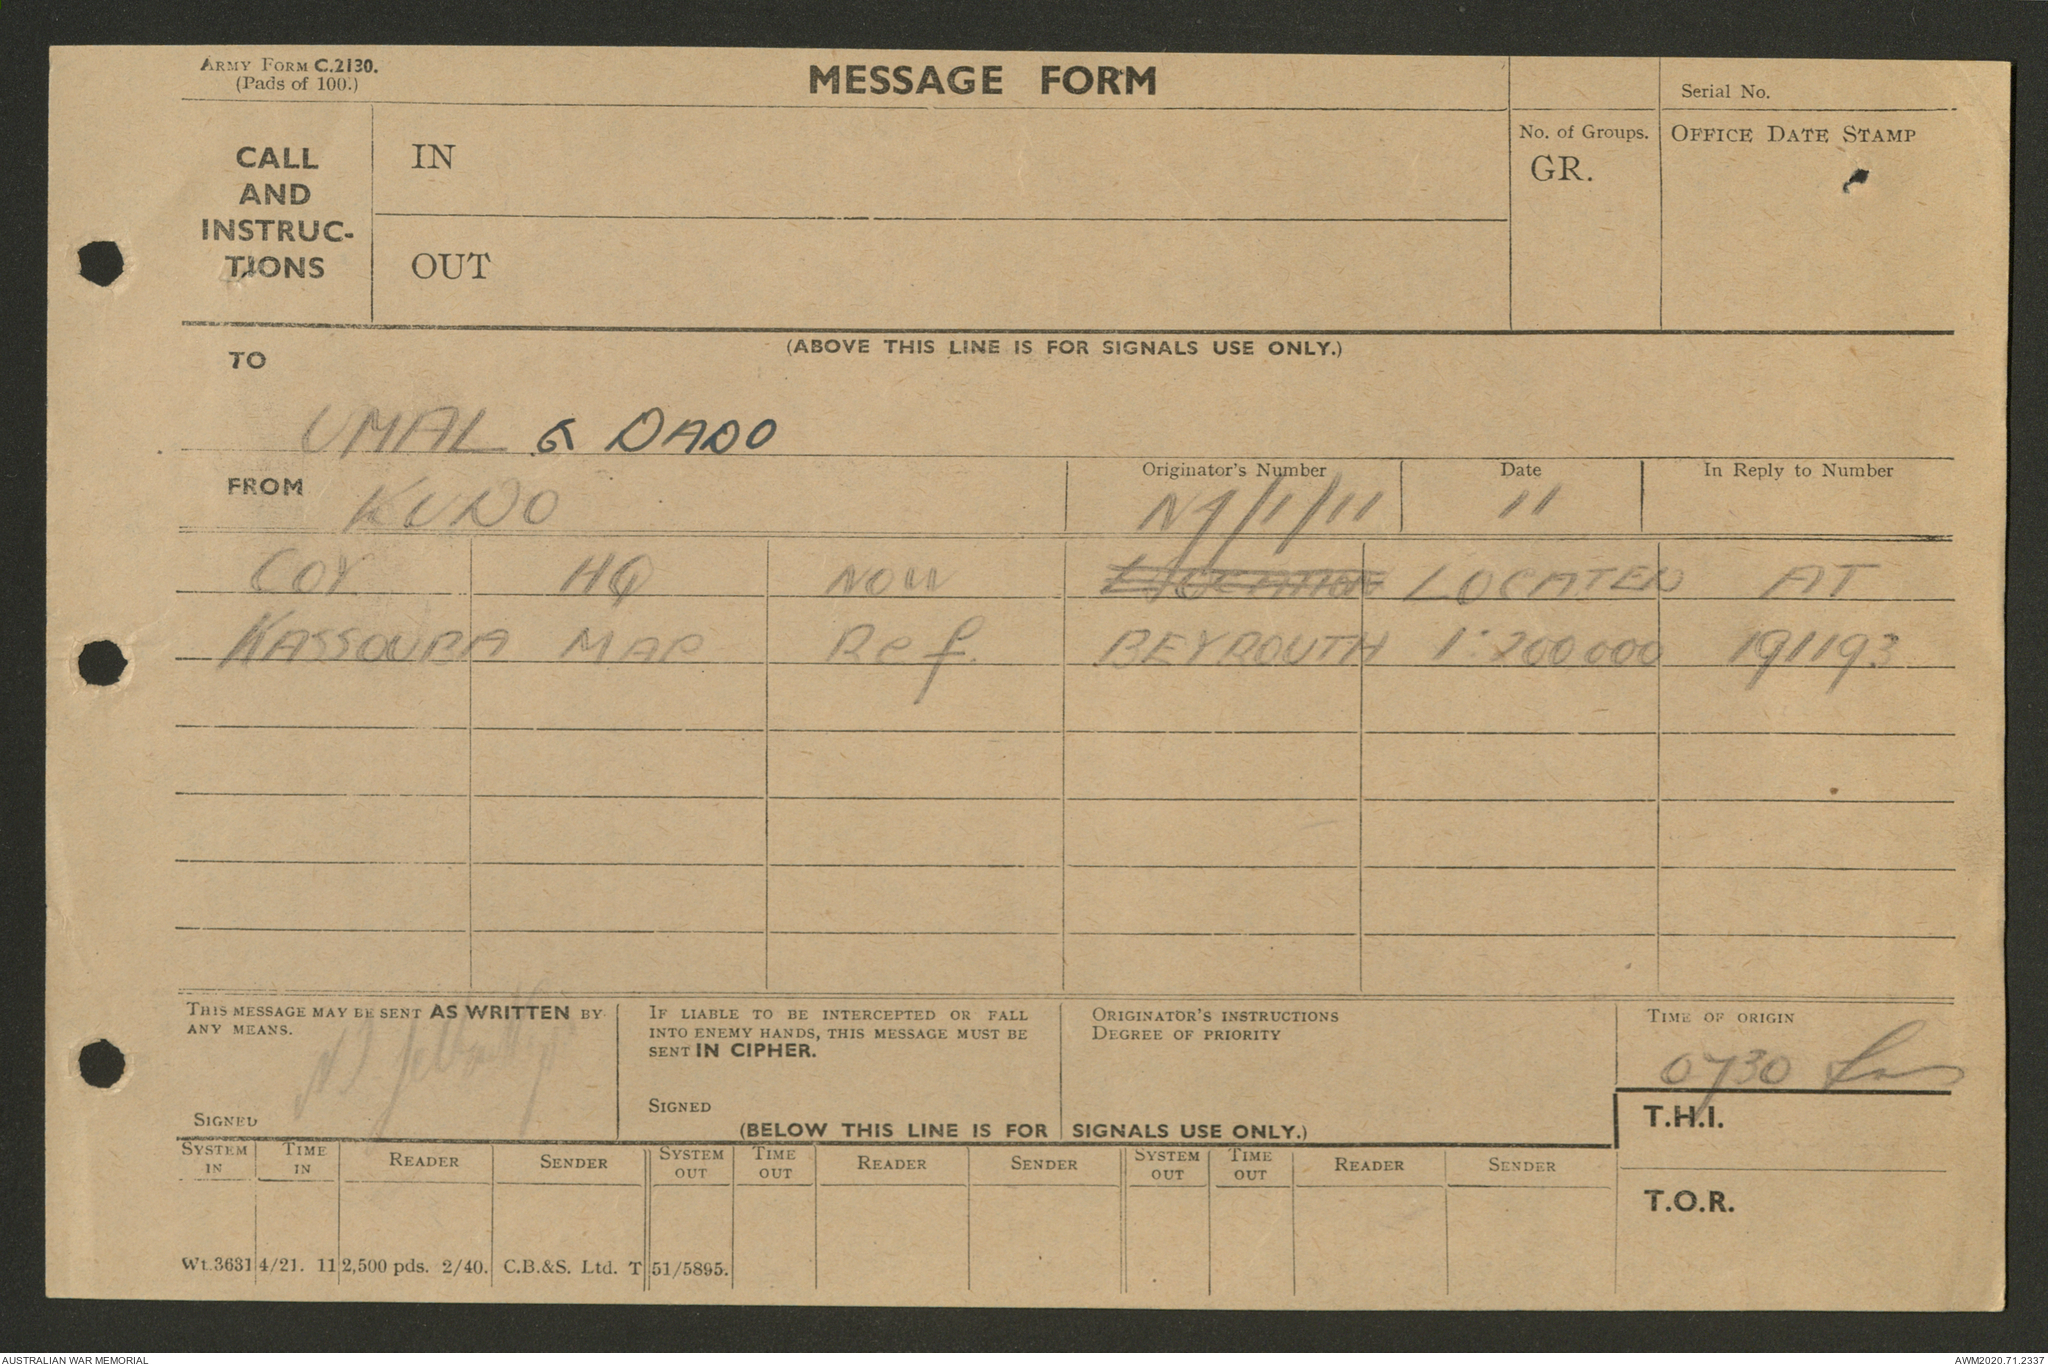 ARMY FORM C.2130.
(Pads of 100.)
MESSAGE FORM
Serial No.
CALL
AND
INSTRUC-
TIONS
IN
OUT
No. of Groups.
GR.
OFFICE DATE STAMP
(ABOVE THIS LINE IS FOR SIGNALS USE ONLY.)
TO
UMAL & DADO
FROM KUNO
Originator's Number
11
Date
11
In Reply to Number
COY HQ NOW LOCATION LOCATED AT
KASSOUBA MAP Ref. BEYROUTH 1:200000 191193
THIS MESSAGE MAY BE SENT AS WRITTEN BY
ANY MEANS.
SIGNED
IF LIABLE TO BE INTERCEPTED OR FALL
INTO ENEMY HANDS, THIS MESSAGE MUST BE
SENT IN CIPHER.
SIGNED
ORIGINATOR'S INSTRUCTIONS
DEGREE OF PRIORITY
TIME OF ORIGIN
0730
T.H.I.
T.O.R.
(BELOW THIS LINE IS FOR SIGNALS USE ONLY.)
SYSTEM IN TIME IN READER SENDER SYSTEM OUT TIME OUT READER SENDER SYSTEM OUT TIME OUT READER SENDER
Wt.36314/21. 112,500 pds. 2/40. C.B.&S. Ltd. T51/5895.
AUSTRALIAN WAR MEMORIAL
AWM2020.71.2337